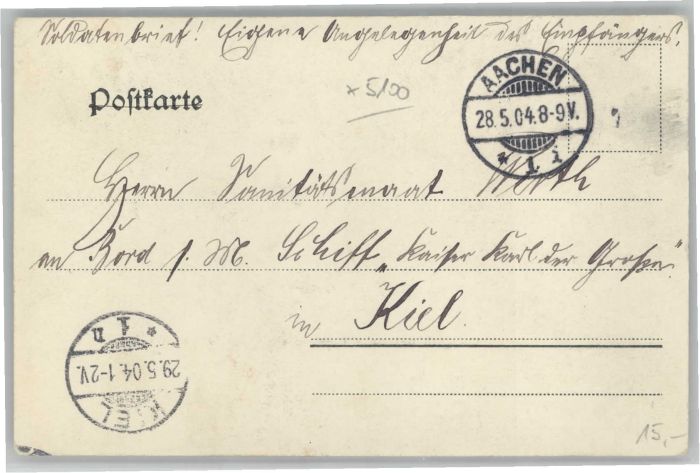 Soldatenbrief! Eigene Angelegenheit des Empfängers.
Postkarte
x 5/00
AACHEN
28.5.04.8-9V.
* 1 i
Herrn Sanitätsmaat Werth
an Bord s. M. Schiff „Kaiser Karl der Große"
in Kiel.
KIEL
29.5.04.1-2V.
* 1 n
15,-